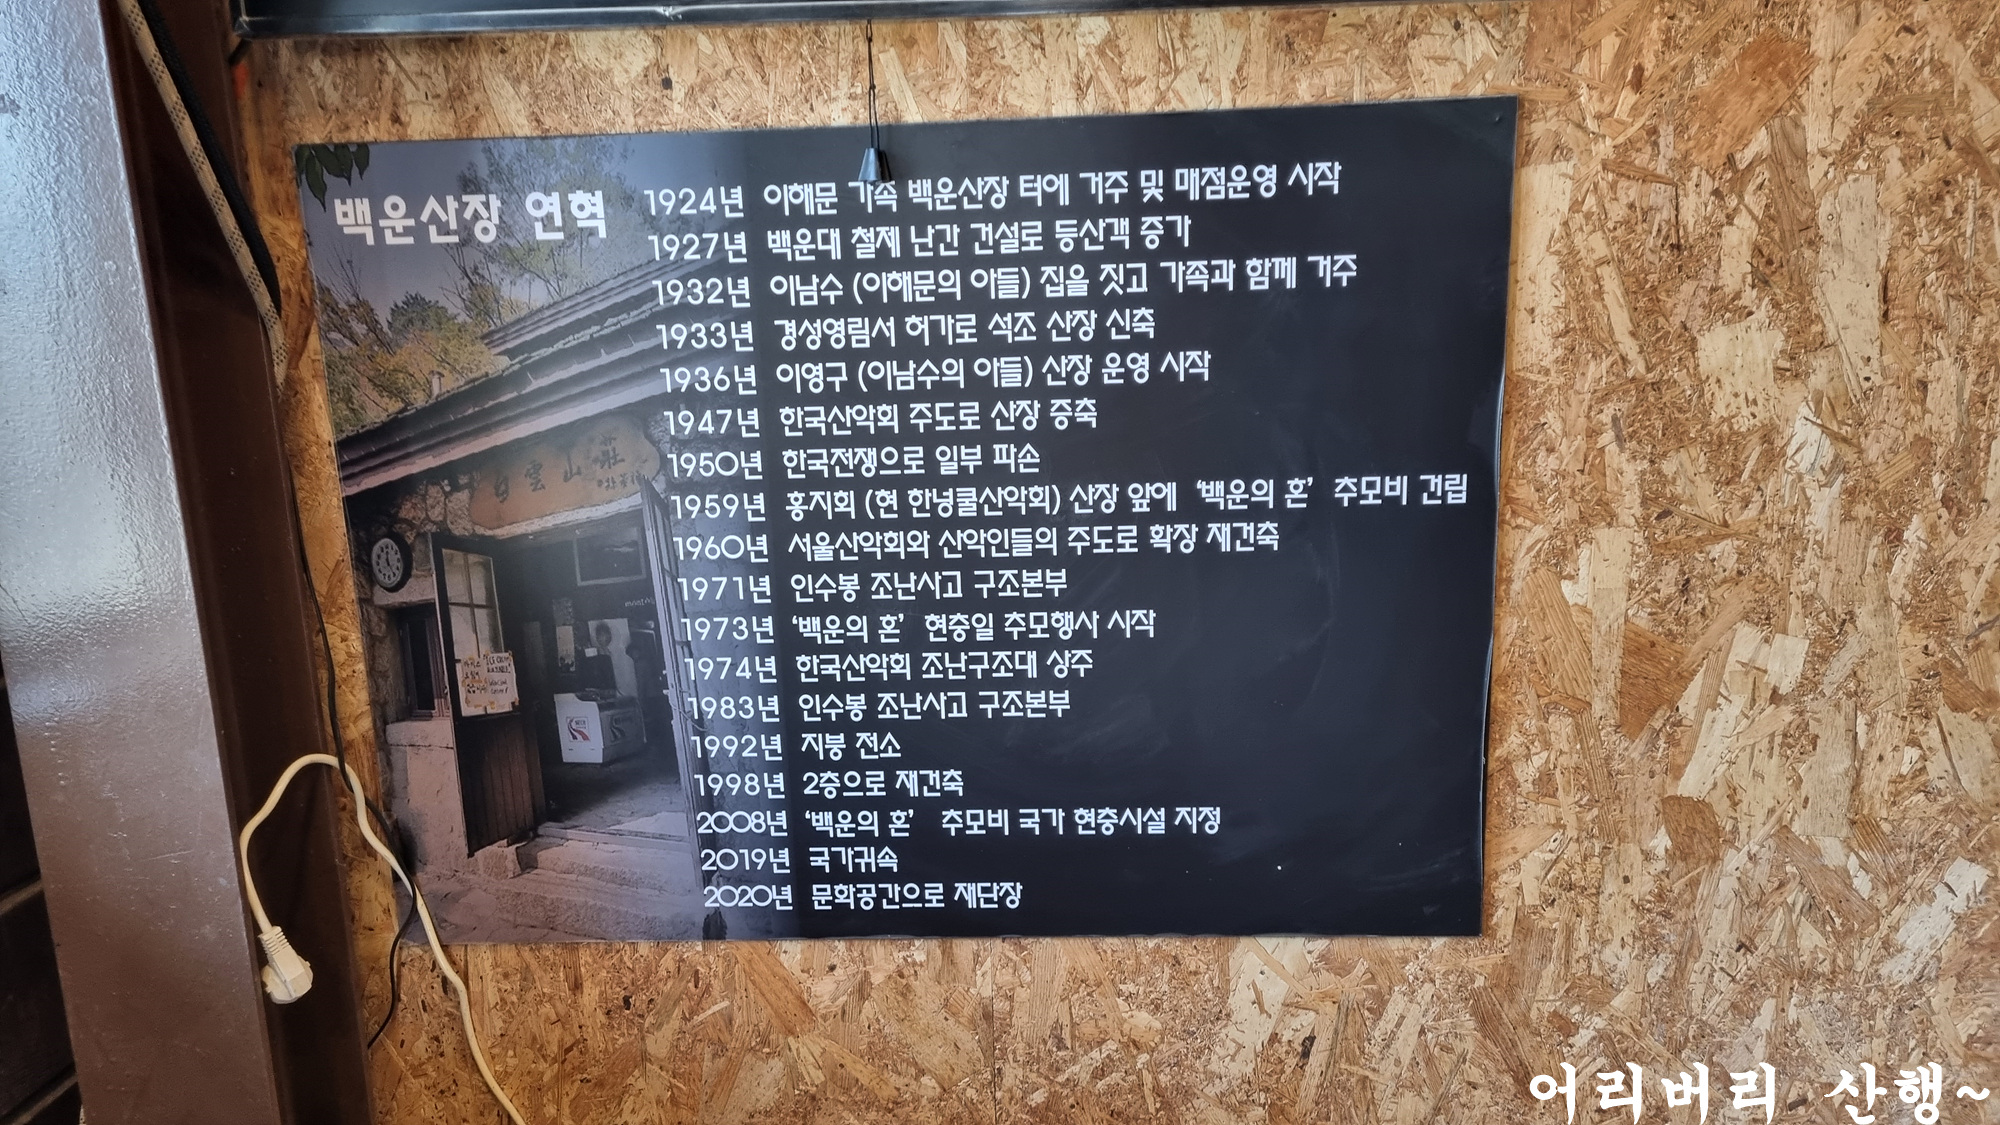 백운산장 연혁
1924년 이해문 가족 백운산장 터에 거주 및 매점운영 시작
1927년 백운대 철제 난간 건설로 등산객 증가
1932년 이남수 (이해문의 아들) 집을 짓고 가족과 함께 거주
1933년 경성영림서 허가로 석조 산장 신축
1936년 이영구 (이남수의 아들) 산장 운영 시작
1947년 한국산악회 주도로 산장 증축
1950년 한국전쟁으로 일부 파손
1959년 홍지회 (현 한넝쿨산악회) 산장 앞에 ‘백운의 혼’ 추모비 건립
1960년 서울산악회와 산악인들의 주도로 확장 재건축
1971년 인수봉 조난사고 구조본부
1973년 ‘백운의 혼’ 현충일 추모행사 시작
1974년 한국산악회 조난구조대 상주
1983년 인수봉 조난사고 구조본부
1992년 지붕 전소
1998년 2층으로 재건축
2008년 ‘백운의 혼’ 추모비 국가 현충시설 지정
2019년 국가귀속
2020년 문화공간으로 재단장
白雲山莊
어리버리 산행~